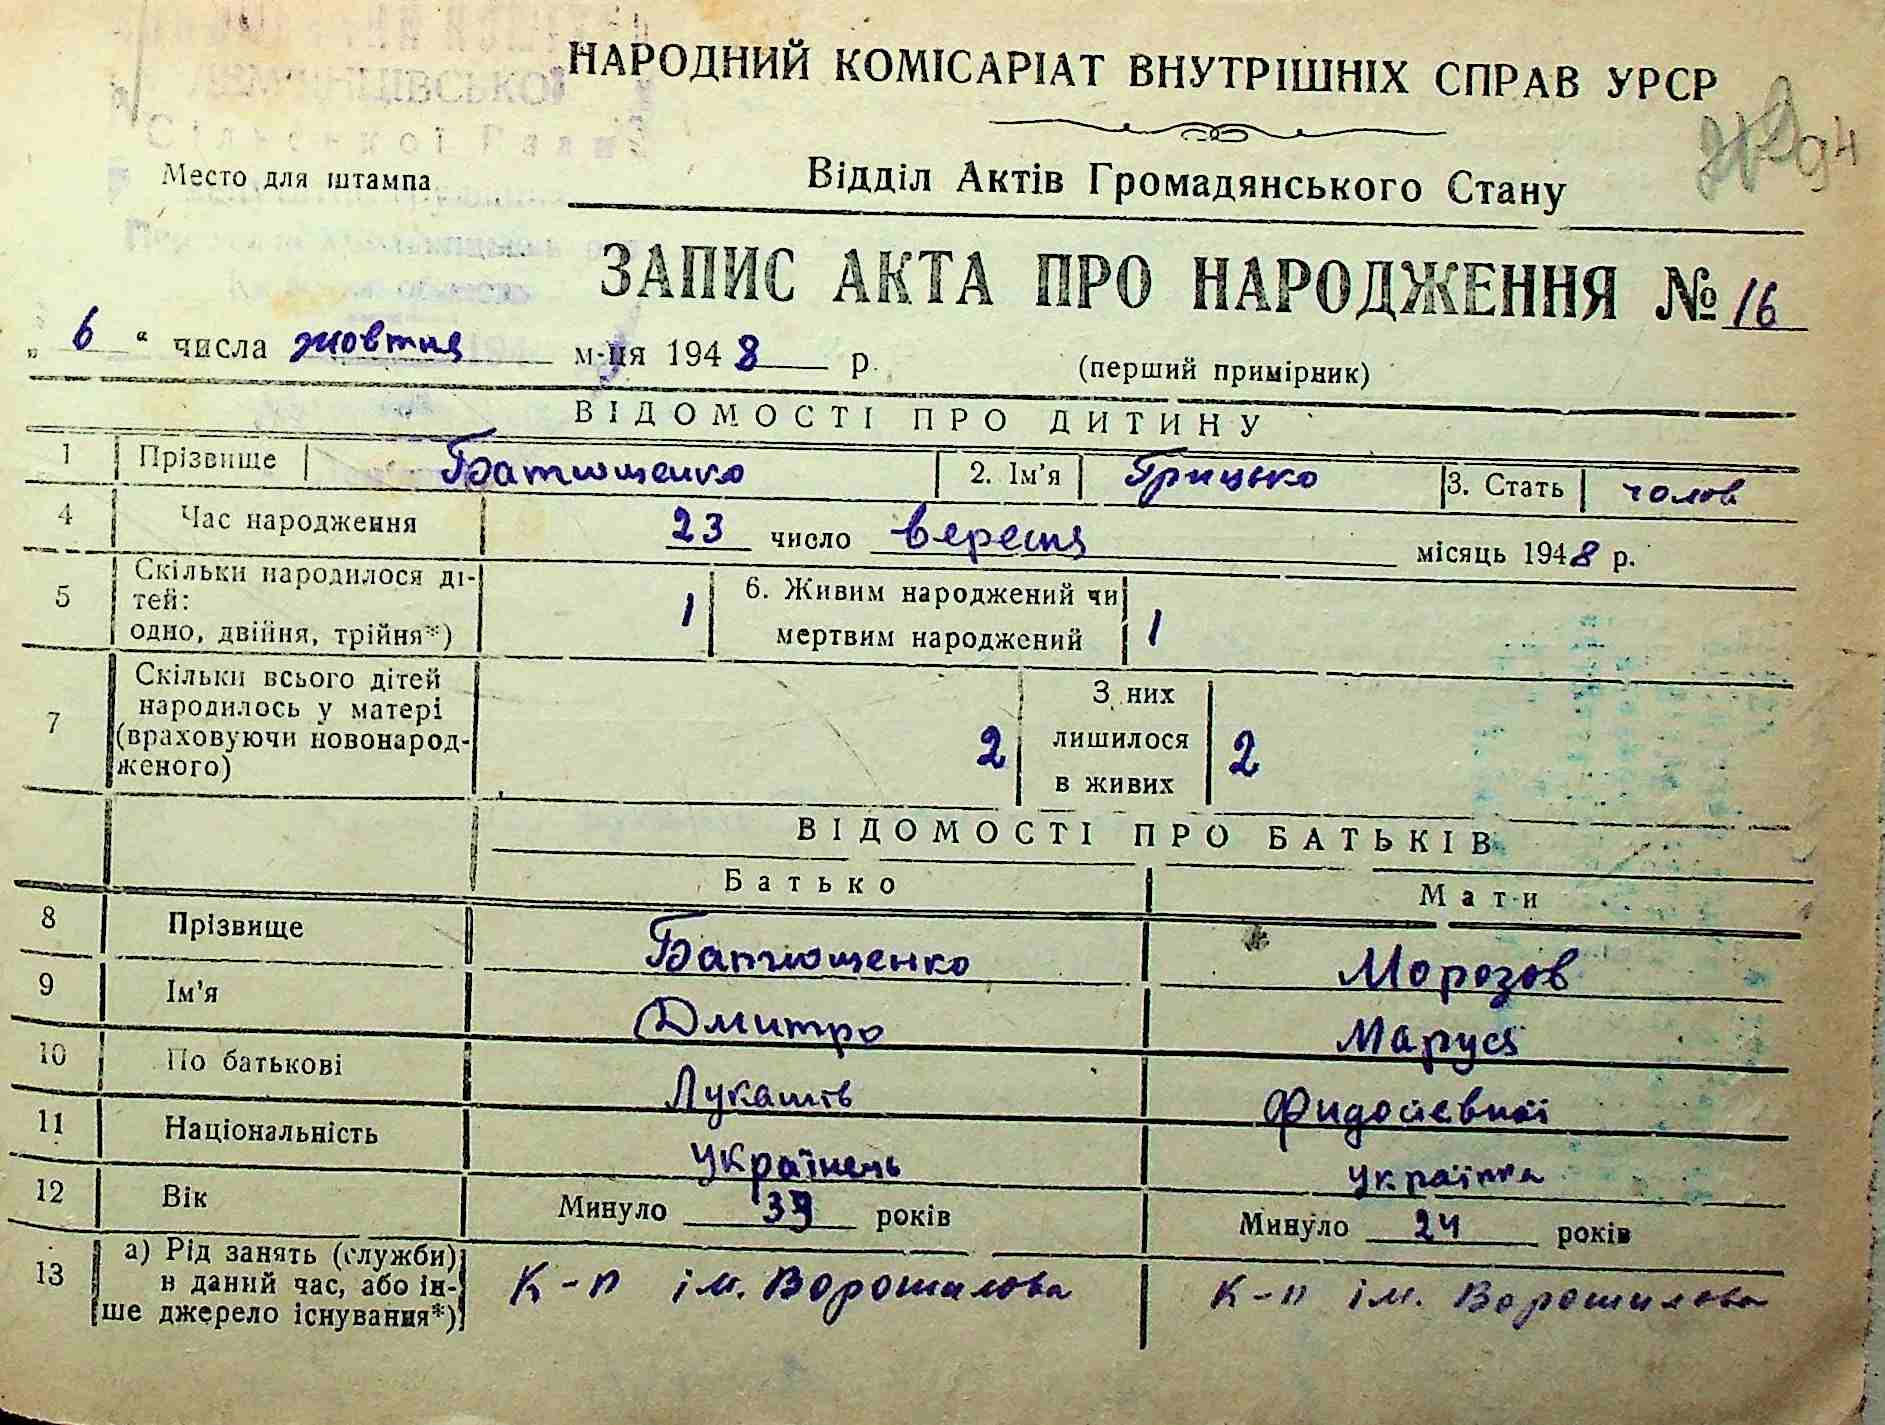 НАРОДНИЙ КОМІСАРІАТ ВНУТРІШНІХ СПРАВ УРСР
Сільської Ради
Место для штампа
Відділ Актів Громадянського Стану
ЗАПИС АКТА ПРО НАРОДЖЕННЯ № 16
„ 6 “ числа жовтня м-ця 1948 р. (перший примірник)
ВІДОМОСТІ ПРО ДИТИНУ
1 Прізвище Батющенко 2. Ім'я Грицько 3. Стать чолов
4 Час народження 23 число вересня місяць 1948 р.
5 Скільки народилося ді-
тей:
одно, двійня, трійня*) 1 6. Живим народжений чи
мертвим народжений 1
7 Скільки всього дітей
народилось у матері
(враховуючи новонарод-
женого) 2 З них
лишилося
в живих 2
ВІДОМОСТІ ПРО БАТЬКІВ
Батько Мати
8 Прізвище Батющенко Морозов
9 Ім'я Дмитро Маруся
10 По батькові Лукашів
11 Національність українець українка
12 Вік Минуло 39 років Минуло 24 років
13 а) Рід занять (служби)
в даний час, або ін-
ше джерело існування*) К-п ім. Ворошилова К-п ім. Ворошилова